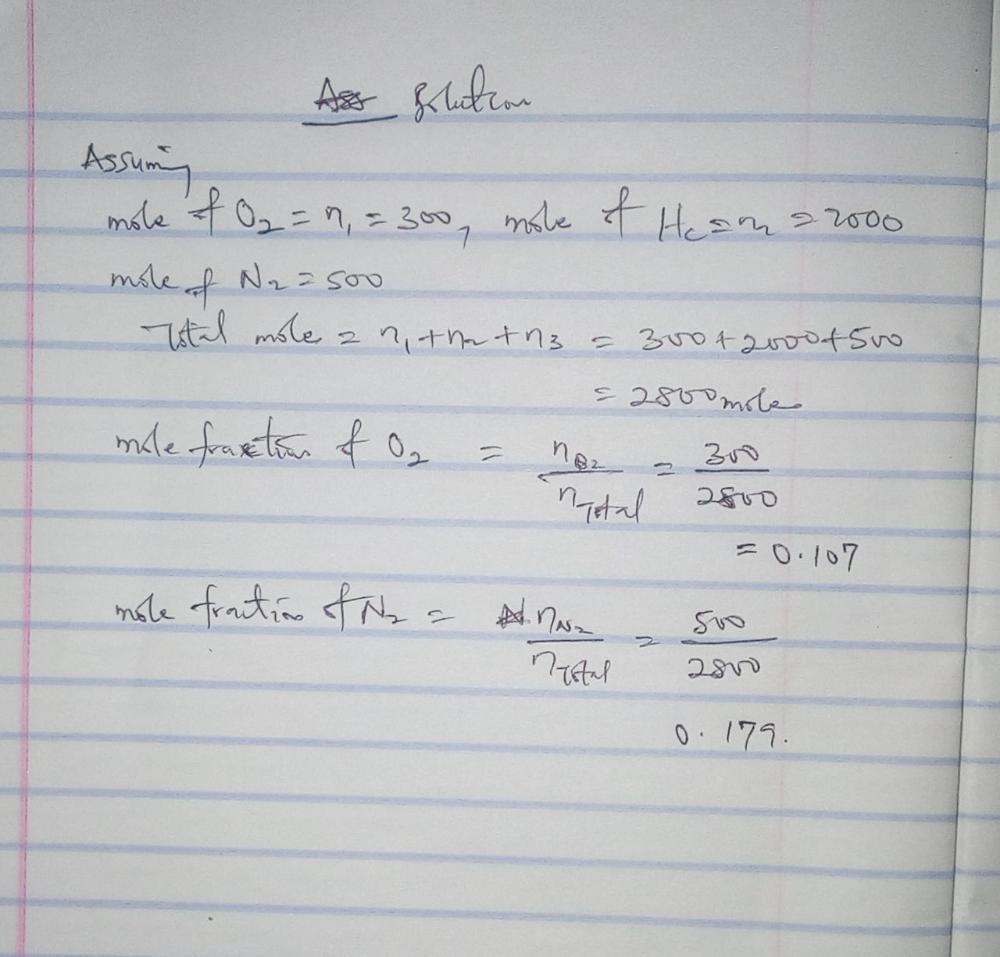 Ass Solution
Assuming
mole of O2 = n1 = 300, mole of Hc = n2 = 2000
mole of N2 = 500
Total mole = n1 + n2 + n3 = 300 + 2000 + 500
= 2800 mole
mole fraction of O2 = nO2 / nTotal = 300 / 2800
= 0.107
mole fraction of N2 = nN2 / nTotal = 500 / 2800
0.179.